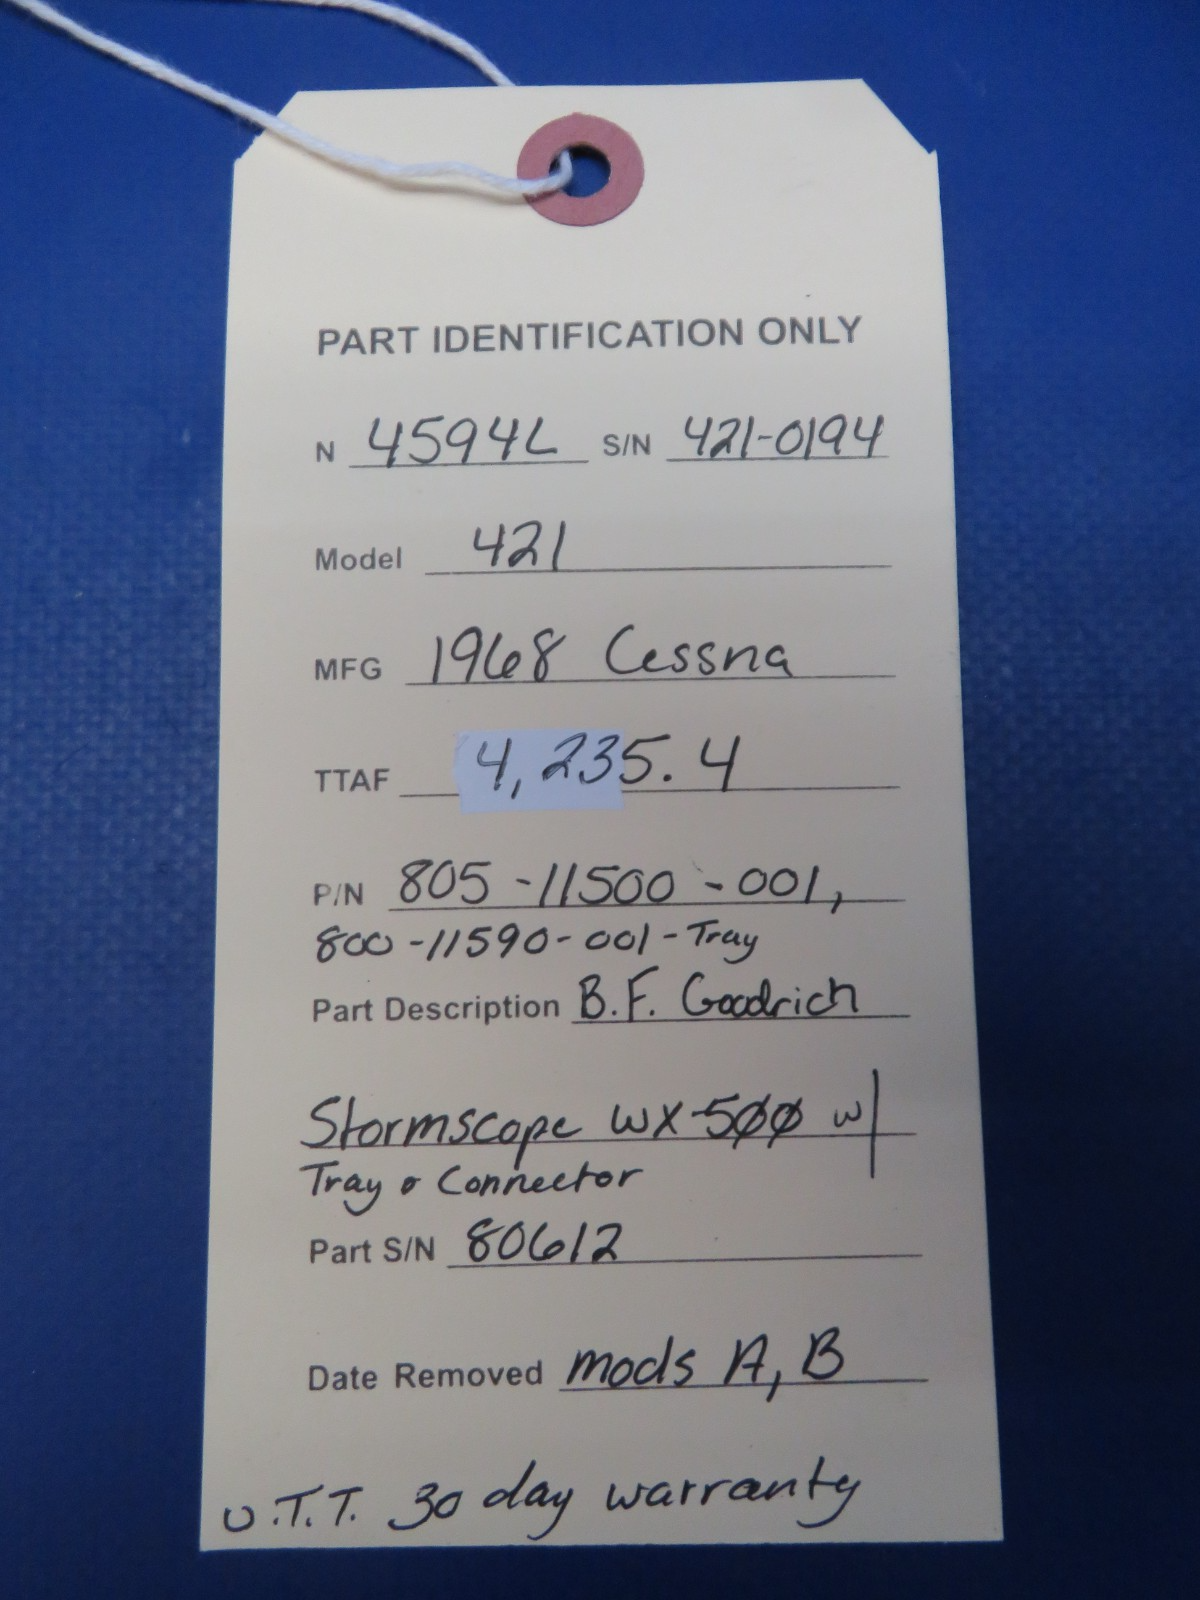 PART IDENTIFICATION ONLY
N 4594L S/N 421-0194
Model 421
MFG 1968 Cessna
TTAF 4,235.4
P/N 805-11500-001,
800-11590-001-Tray
Part Description B.F. Goodrich
Stormscope WX-500 w/
Tray & Connector
Part S/N 80612
Date Removed mods A, B
U.T.T. 30 day warranty